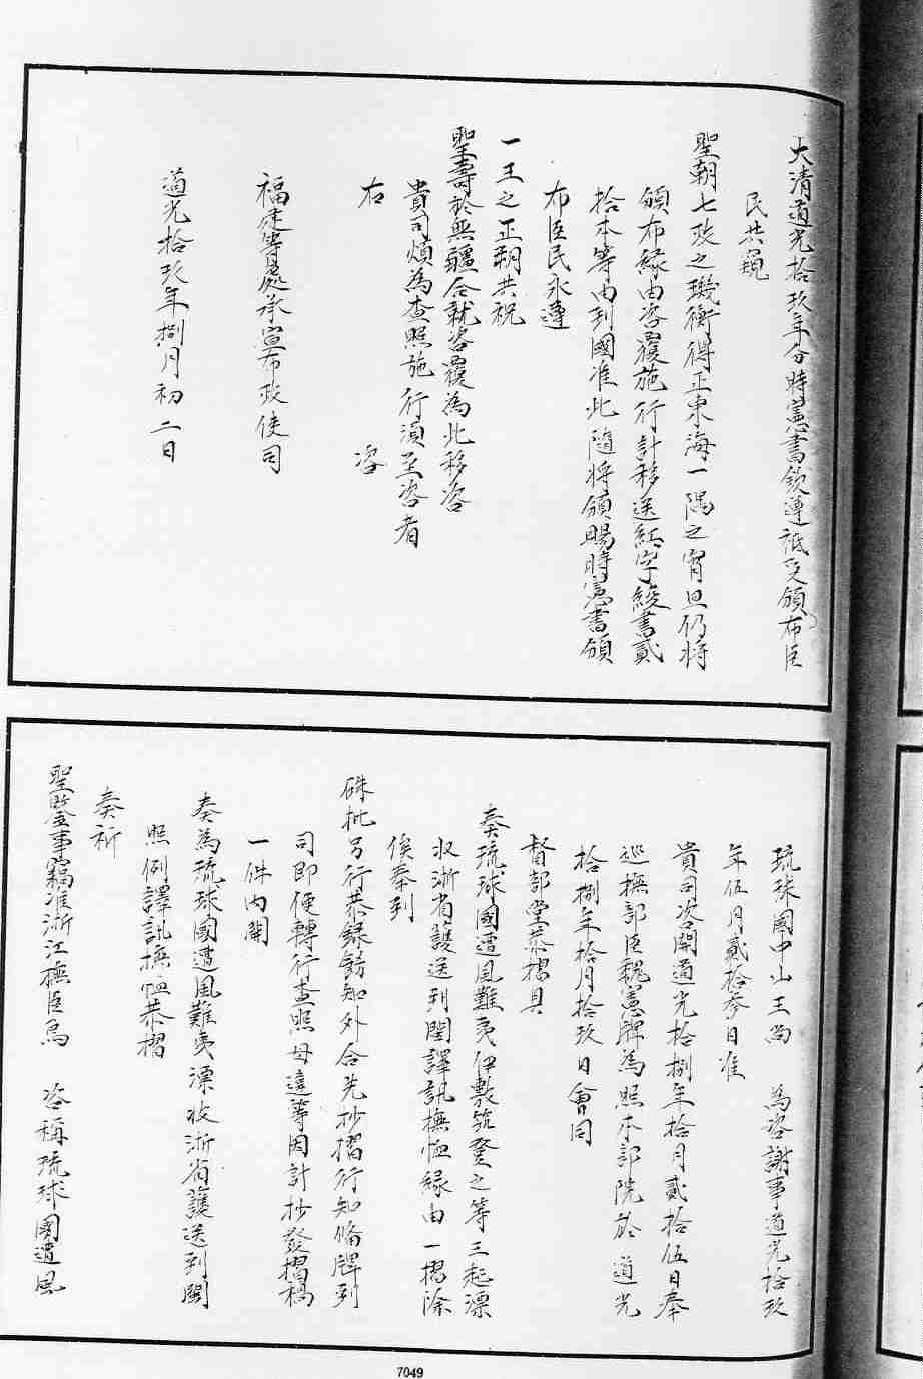 大清道光拾玖年分時憲書欽遵祗受頒布臣
民共覩
聖朝七政之璣衡得正東海一隅之宵旦仍將
頒布緣由咨覆施行計移送紅字綾書貳
拾本等由到國准此隨將頒賜時憲書頒
布臣民永遵
一王之正朔共祝
聖壽於無疆合就咨覆為此移咨
貴司煩為查照施行須至咨者
右 咨
福建等處承宣布政使司
道光拾玖年捌月初二日
琉球國中山王尚 為咨謝事道光拾玖
年伍月貳拾參日准
貴司咨開道光拾捌年拾月貳拾伍日奉
巡撫部臣魏憲牌為照本部院於道光
拾捌年拾月拾玖日會同
督部堂恭摺具
奏琉球國遭風難夷伊敷筑登之等三起漂
收浙省護送到閩譯訊撫恤緣由一摺除
俟奉到
硃批另行恭錄飭知外合先抄摺行知備牌到
司即便轉行查照毋違等因計抄發摺稿
一件內開
奏為琉球國遭風難夷漂收浙省護送到閩
照例譯訊撫恤恭摺
奏祈
聖鑒事竊准浙江撫臣烏 咨稱琉球國遭風
7049